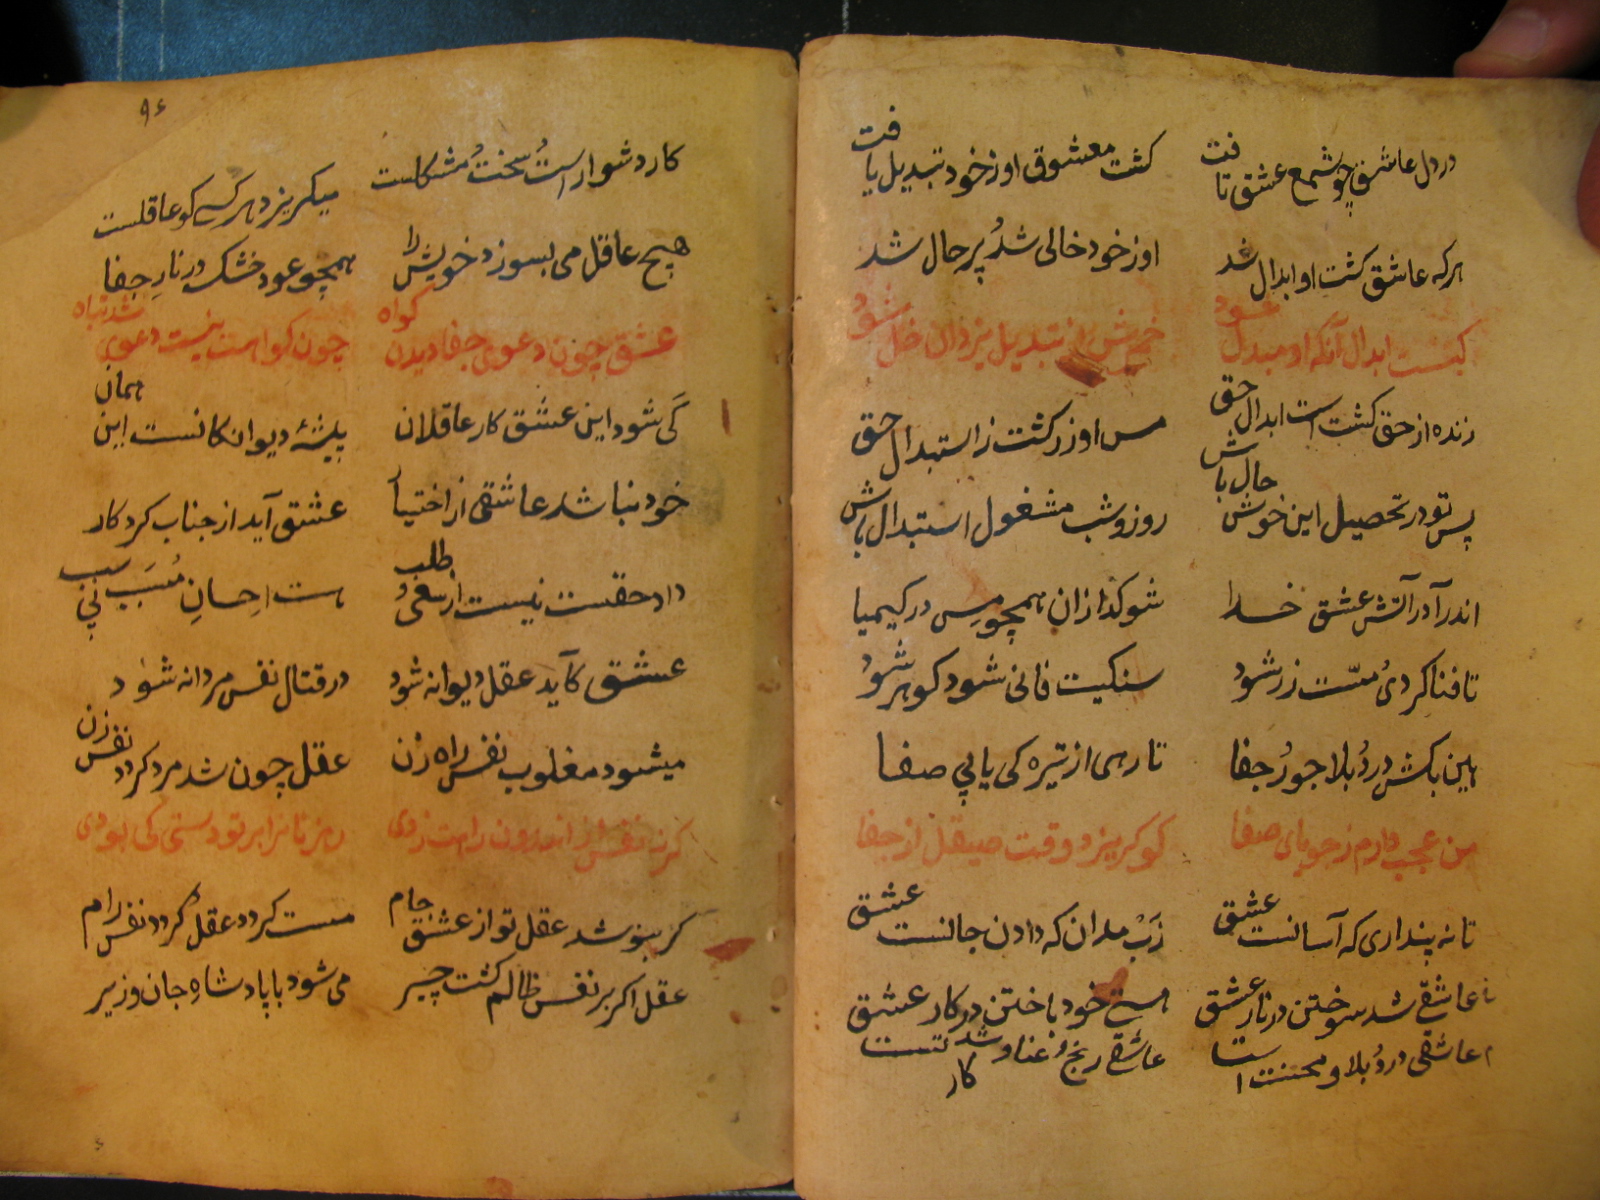 در دل عاشق چو شمع عشق تافت
کشت معشوق او ز خود تبدیل یافت
هرکه عاشق کشت او ابدال شد
او ز خود خالی شد پر حال شد
کیست ابدال آنکه او مبدل شود
خمرش از تبدیل یزدان خل شود
زنده از حق کشت است ابدال حق
مس او زر کشت ز استبدال حق
پس تو در تحصیل این خوش حال باش
روز و شب مشغول استبدال باش
اندر آ در آتش عشق خدا
شو کدازان همچو مس در کیمیا
تا فنا کردی مست زر شود
سنکیت فانی شود کوهر شود
هین بکش درد بلا جور جفا
تا رهی از تیره کی یابی صفا
من عجب دارم ز جویای صفا
کو کریزد وقت صیقل از جفا
تا نه پنداری که آسانست عشق
زب مدان که دادن جانست عشق
عاشقی شد سوختن در نار عشق
هستی خود باختن در کار عشق
عاشقی درد بلا و محنت است
عاشقی رنج عنا و شدتست
کار
۹۶
کار دشوار است سخت مشکلست
میکریزد هرکسی کو عاقلست
هیچ عاقل می بسوزد خویش را
همچو عود خشک در نار جفا
عشق چون دعوی جفا دیدن کواه
چون کواهت نیست دعوی شد تباه
کی شود این عشق کار عاقلان
پیشهٔ دیوانکانست این همان
خود نباشد عاشقی از اختیار
عشق آید از جناب کردکار
داد حقست نیست از سعی و طلب
هست احسان مسبب بی سبب
عشق کآید عقل دیوانه شود
در قتال نفس مردانه شود
میشود مغلوب نفس راه زن
عقل چون شد مرد کردد نفس زن
کرنه نفس از اندرون راهت زدی
رهزنانرا بر تو دستی کی بودی
کر بنوشد عقل تو از عشق جام
مست کردد عقل کردد نفس رام
عقل اکر بر نفس ظالم کشت چیر
می شود با پادشاه جان وزیر